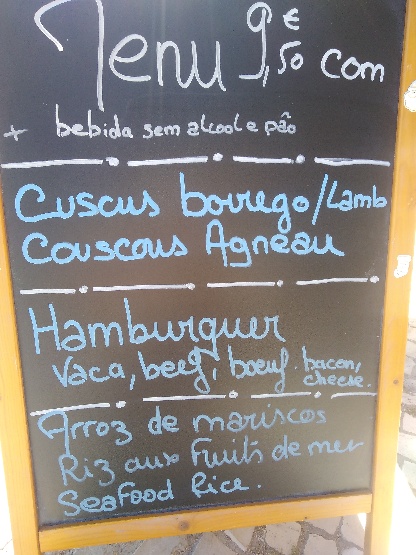 Menu 9,50 € com
+ bebida sem alcool e pão
Cuscus borrego/Lamb
Couscous Agneau
Hamburguer
Vaca, beef, boeuf. bacon,
cheese.
Arroz de mariscos
Riz aux Fruits de mer
Seafood Rice.